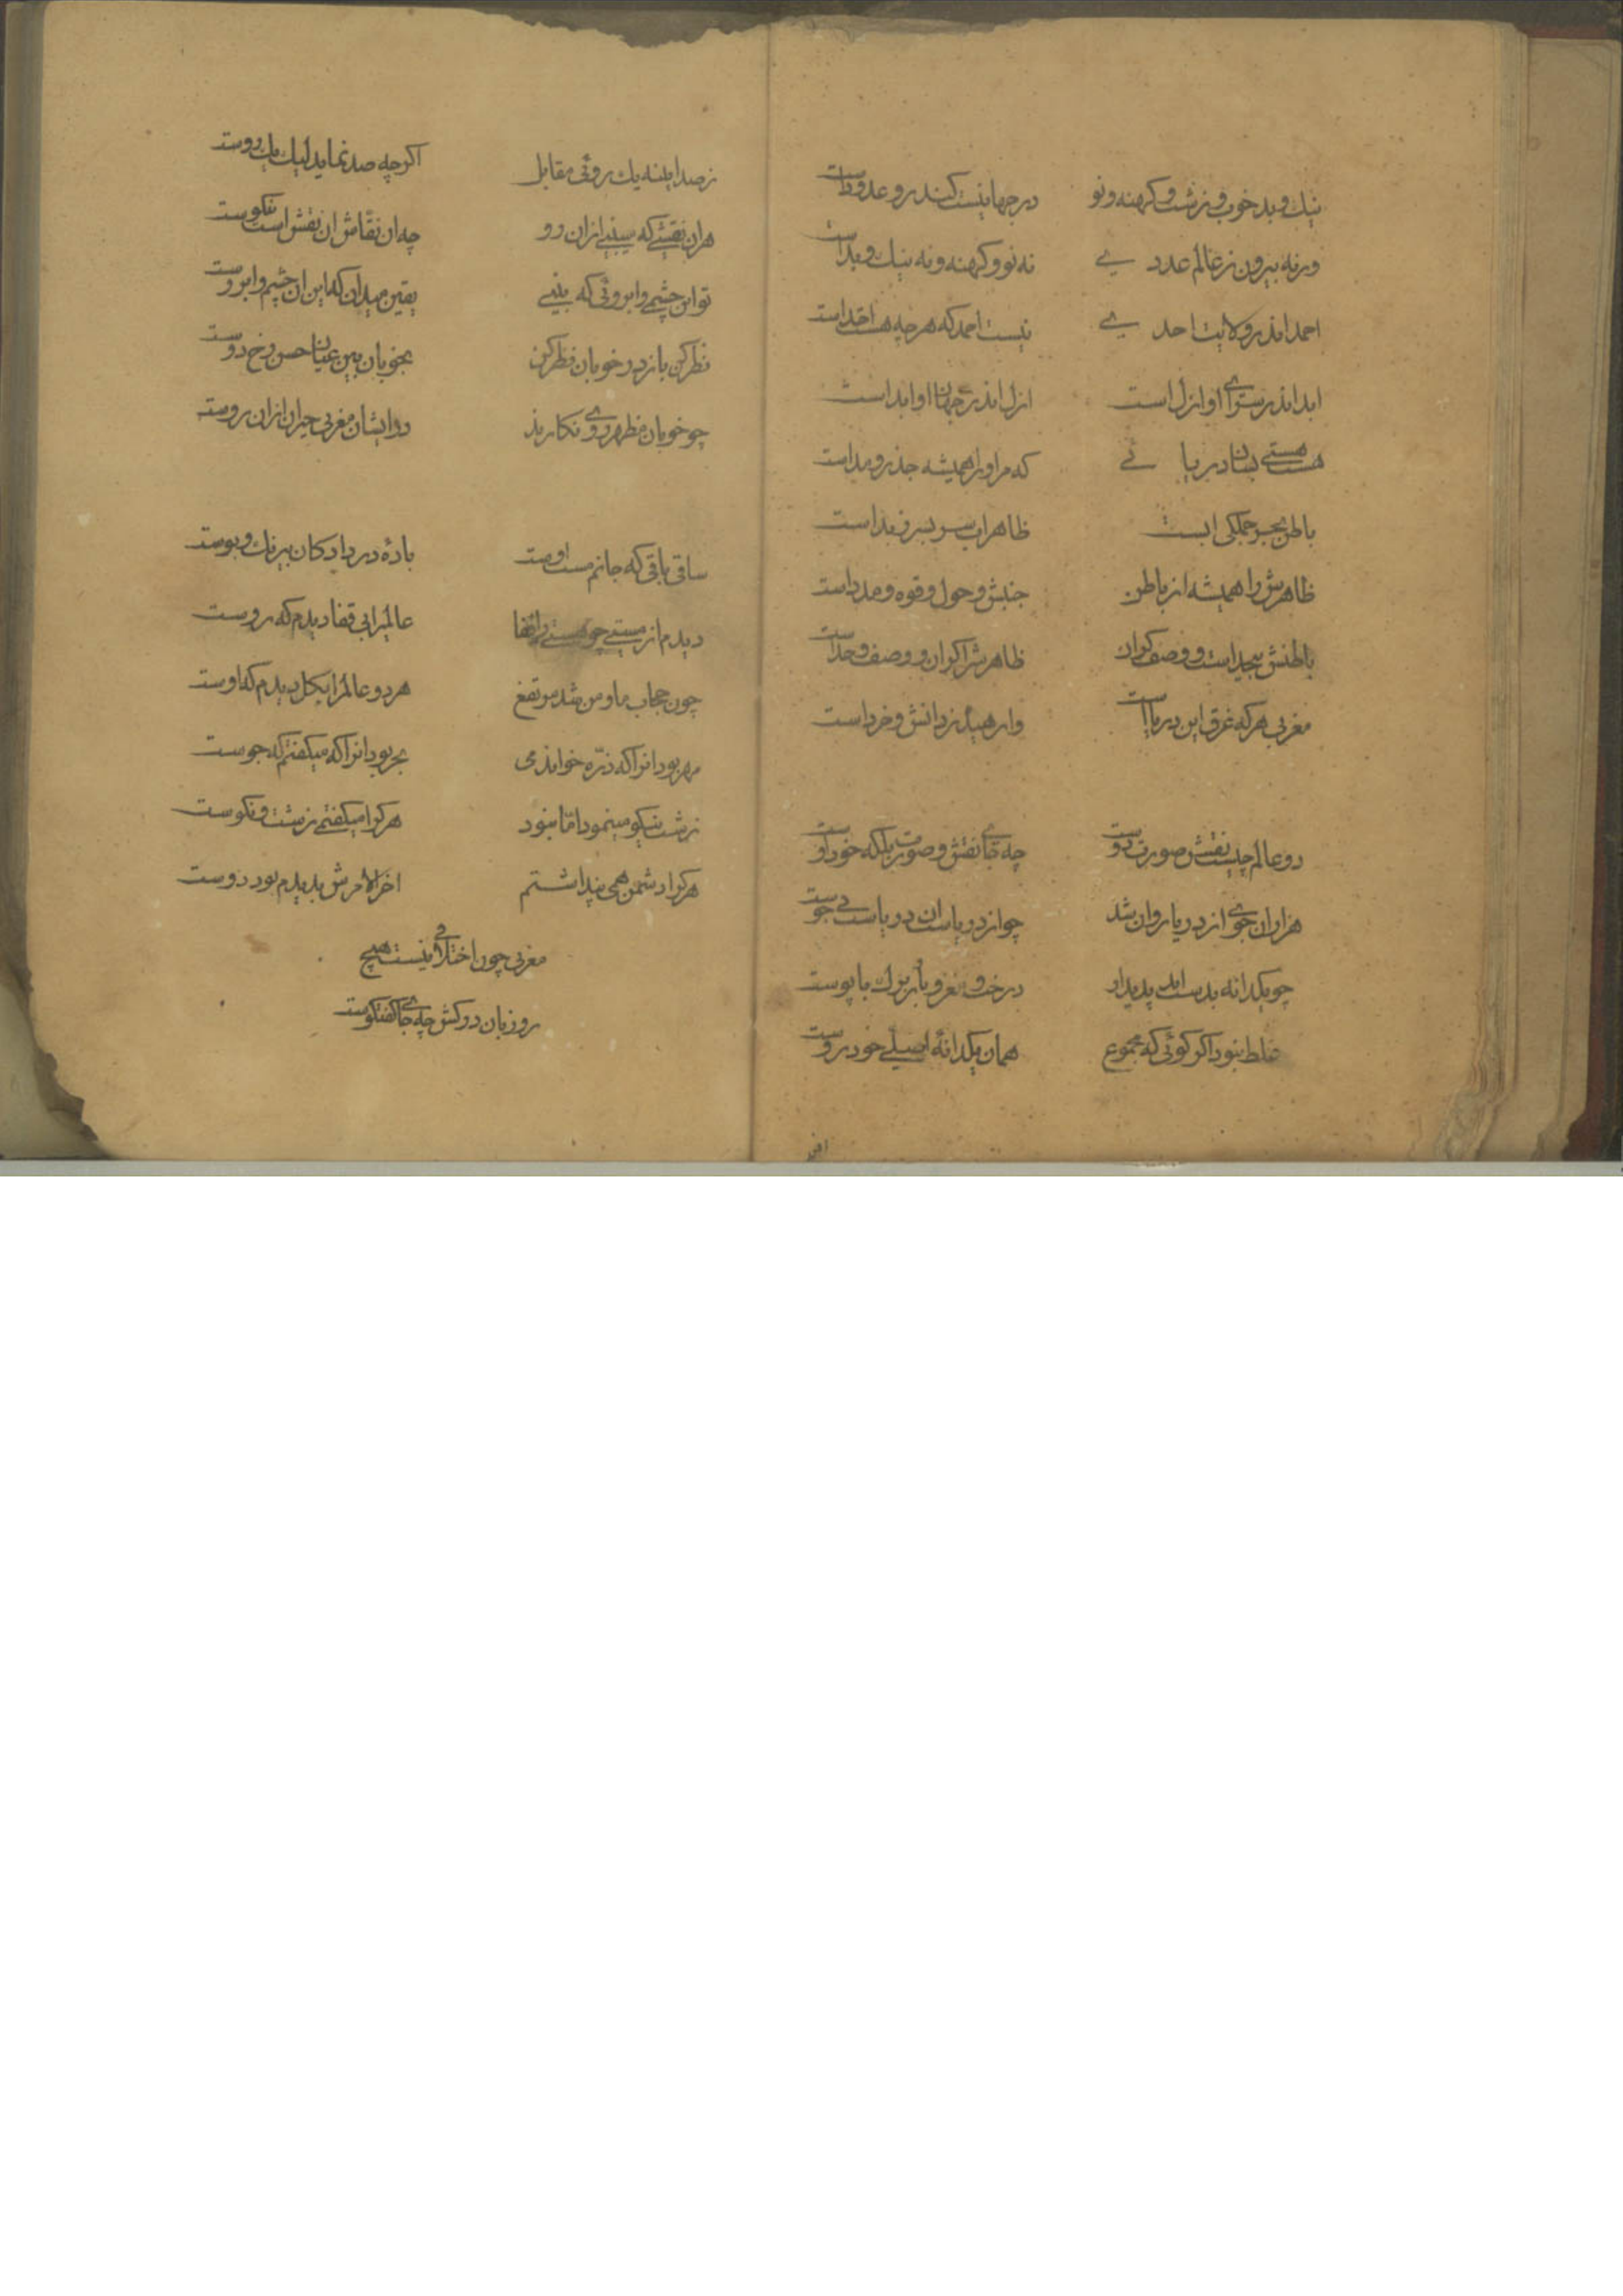 نیك و بد خوب و زشت و کهنه و نو در جهانیست کند رو عدد است
ورنه بیرون ز عالم عدد یے نه نو و کهنه و نه نیك و بد است
احمد اندر ولایت احد یے نیست احمد که هر چه هست احد است
ابد اندر سرای او ازل است ازل اندر جهان او ابد است
هست هستی بسان دریا ئے که مر او را همیشه جذر و مد است
باطن بحر جملکی ابست ظاهراب سر بسر زبد است
ظاهرش را همیشه از باطن جنبش و حول و قوه و مدد است
باطنش بیحد است و وصف کران ظاهرش را کران و وصف و حد است
مغربی هر که غرق این دریا است وارهیده ز دانش و خرد است
دو عالم چیست نقش صورت دوست چه جای نقش و صورت بلکه خود اوست
هزاران جوی از دریا روان شد چو از دریاست ان دریاست بی جوست
چو یکدانه بدست امد پدیدار درخت و مغز و بار و برك با پوست
غلط نبود اکر کوئی که مجموع همان یکدانهٔ اصلے خود روست
ز صد ایینه یك روئی مقابل اکر چه صد نماید لیك یك روست
هر ان نقشے که میبینے ازان رو چه ان نقاش ان نقش است نیکوست
تو این چشم و ابروئی که بینے یقین میدان که این ان چشم و ابروست
نظر کن باز در خوبان نظر کن بخوبان بین عیان حسن رخ دوست
چو خوبان مظهر روی نکارند در ایشان مغربی حیران ازان روست
ساقی باقی که جانم مست اوست بادهٔ در داد کان بیرنك و بوست
دیدم از مستے چو هستے را قفا عالمیرا بی قفا دیدم که روست
چون حجاب ما و من شد مرتفع هر دو عالم را بکل دیدم که اوست
مهر بود انرا که ذرّه خواندمی بحر بود انرا که میکفتم که جوست
زشت نیکو مینمود امّا نبود هر کرا میکفتمے زشت و نکوست
هر کرا دشمن همی پنداشتم اخر الامرش بدیدم بود دوست
مغربی چون اختلافی نیست هیچ
رو زبان درکش چه جای کفتکوست